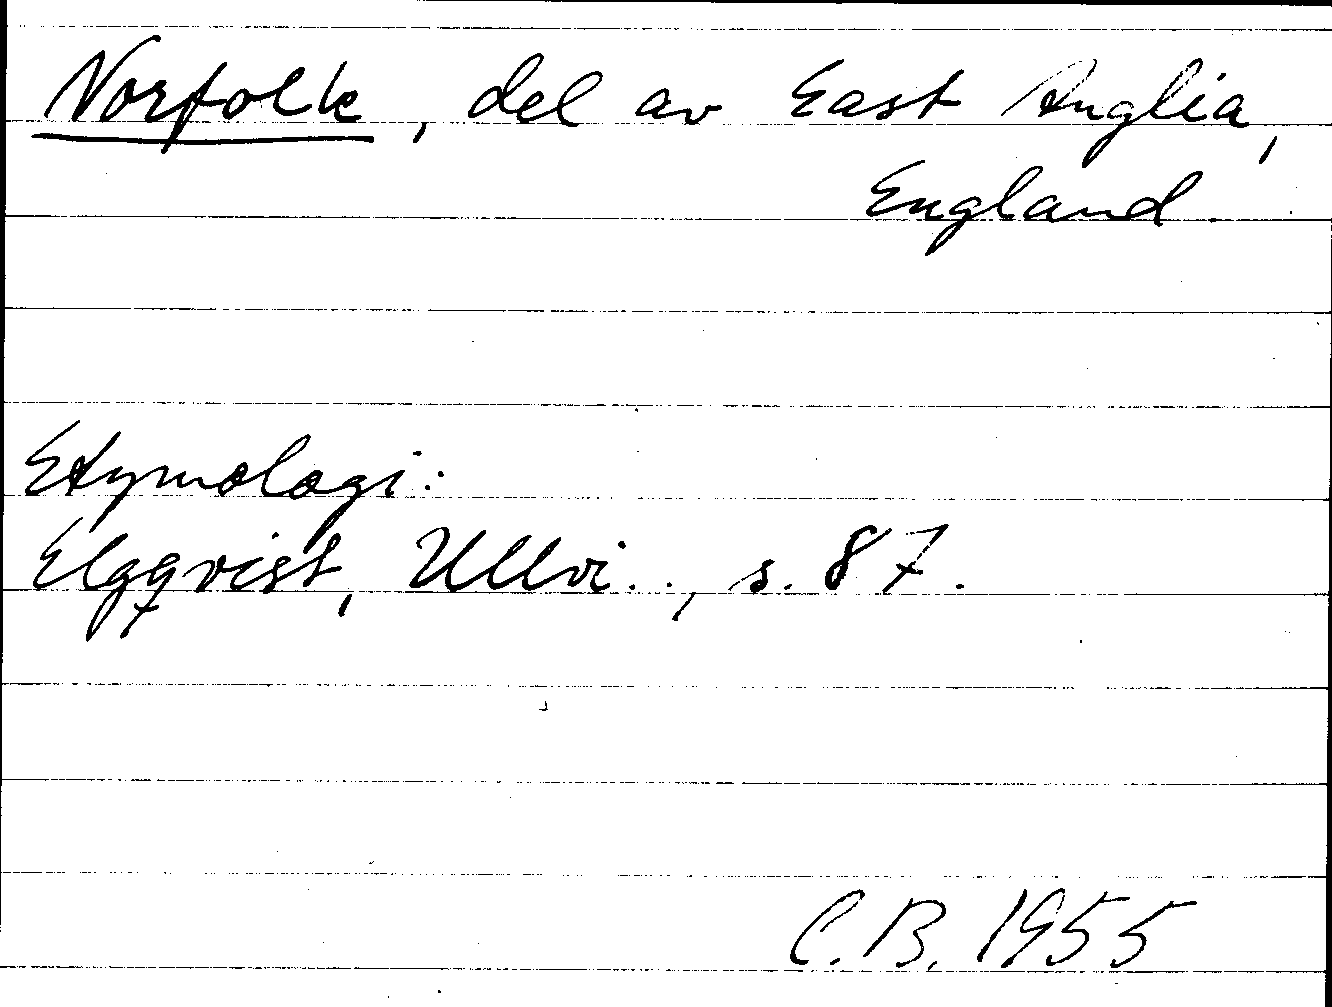 Norfolk, del av East Anglia,
England.
Etymologi:
Elgqvist, Ullvi.., s. 87.
C.B. 1955